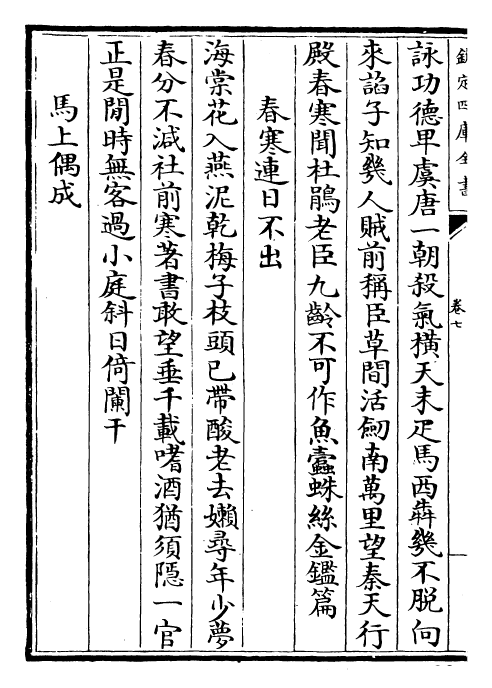 欽定四庫全書
卷七
詠功德卑虞唐一朝殺氣横天末疋馬西犇幾不脱向
來諂子知幾人賊前稱臣草間活劒南萬里望秦天行
殿春寒聞杜鵑老臣九齡不可作魚蠧蛛絲金鑑篇
春寒連日不出
海棠花入燕泥乾梅子枝頭已帶酸老去嬾尋年少夢
春分不減社前寒著書敢望垂千載嗜酒猶須隐一官
正是閒時無客過小庭斜日倚闌干
馬上偶成